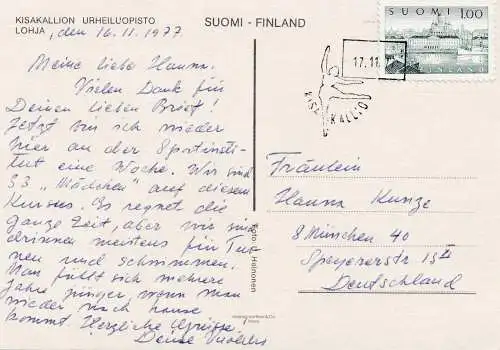 KISAKALLION URHEILUOPISTO
LOHJA, den 16.11.1977
SUOMI - FINLAND
Meine liebe Hanna.
Vielen Dank für
Deinen lieben Brief!
Jetzt bin ich wieder
hier an der Sportinsti-
tut eine Woche. Wir sind
33 "Mädchen" auf diesem
Kursus. Es regnet die
ganze Zeit, aber wir sind
drinnen meistens für Tur-
nen und schwimmen.
Man fühlt sich mehrere
Jahre jünger, wenn man
wieder nach hause
kommt. Herzliche Grüsse
Deine
Foto: Heinonen
17.11.
KISAKALLIO
SUOMI 1.00
FINLAND
Fräulein
Hanna Kunze
8 München 40
Speyererstr 15 II
Deutschland